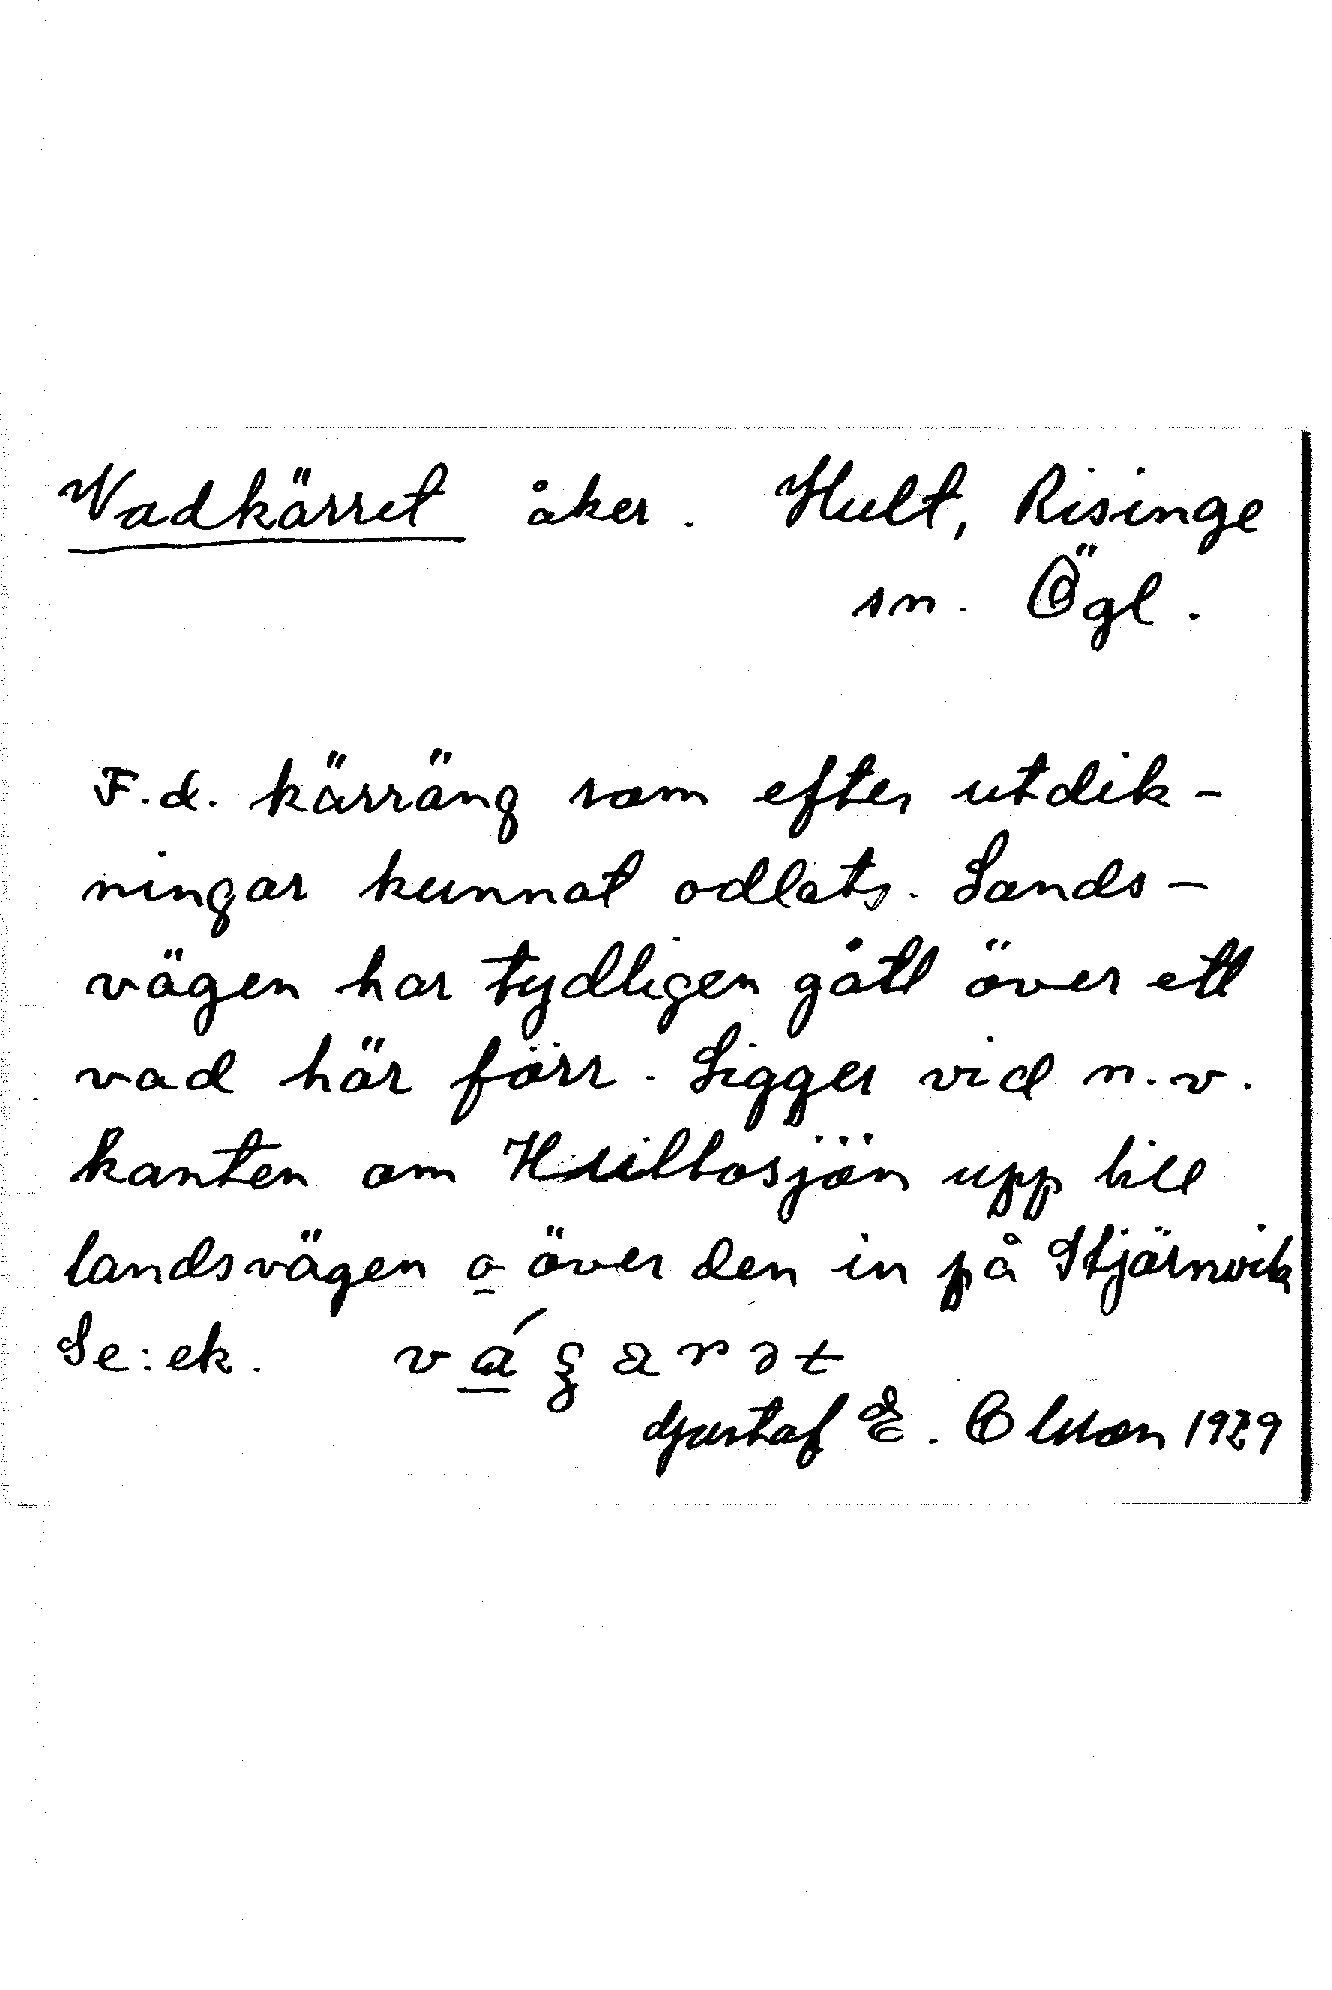 Vadkärret åker. Hult, Risinge
sn. Ögl.
F.d. kärräng som efter utdik-
ningar kunnat odlats. Lands-
vägen har tydligen gått över ett
vad här förr. Ligger vid n.v.
kanten om Hultosjön upp till
landsvägen o över den in på Stjärnvik
Se: ek.
Gustaf E. Olsson 1929